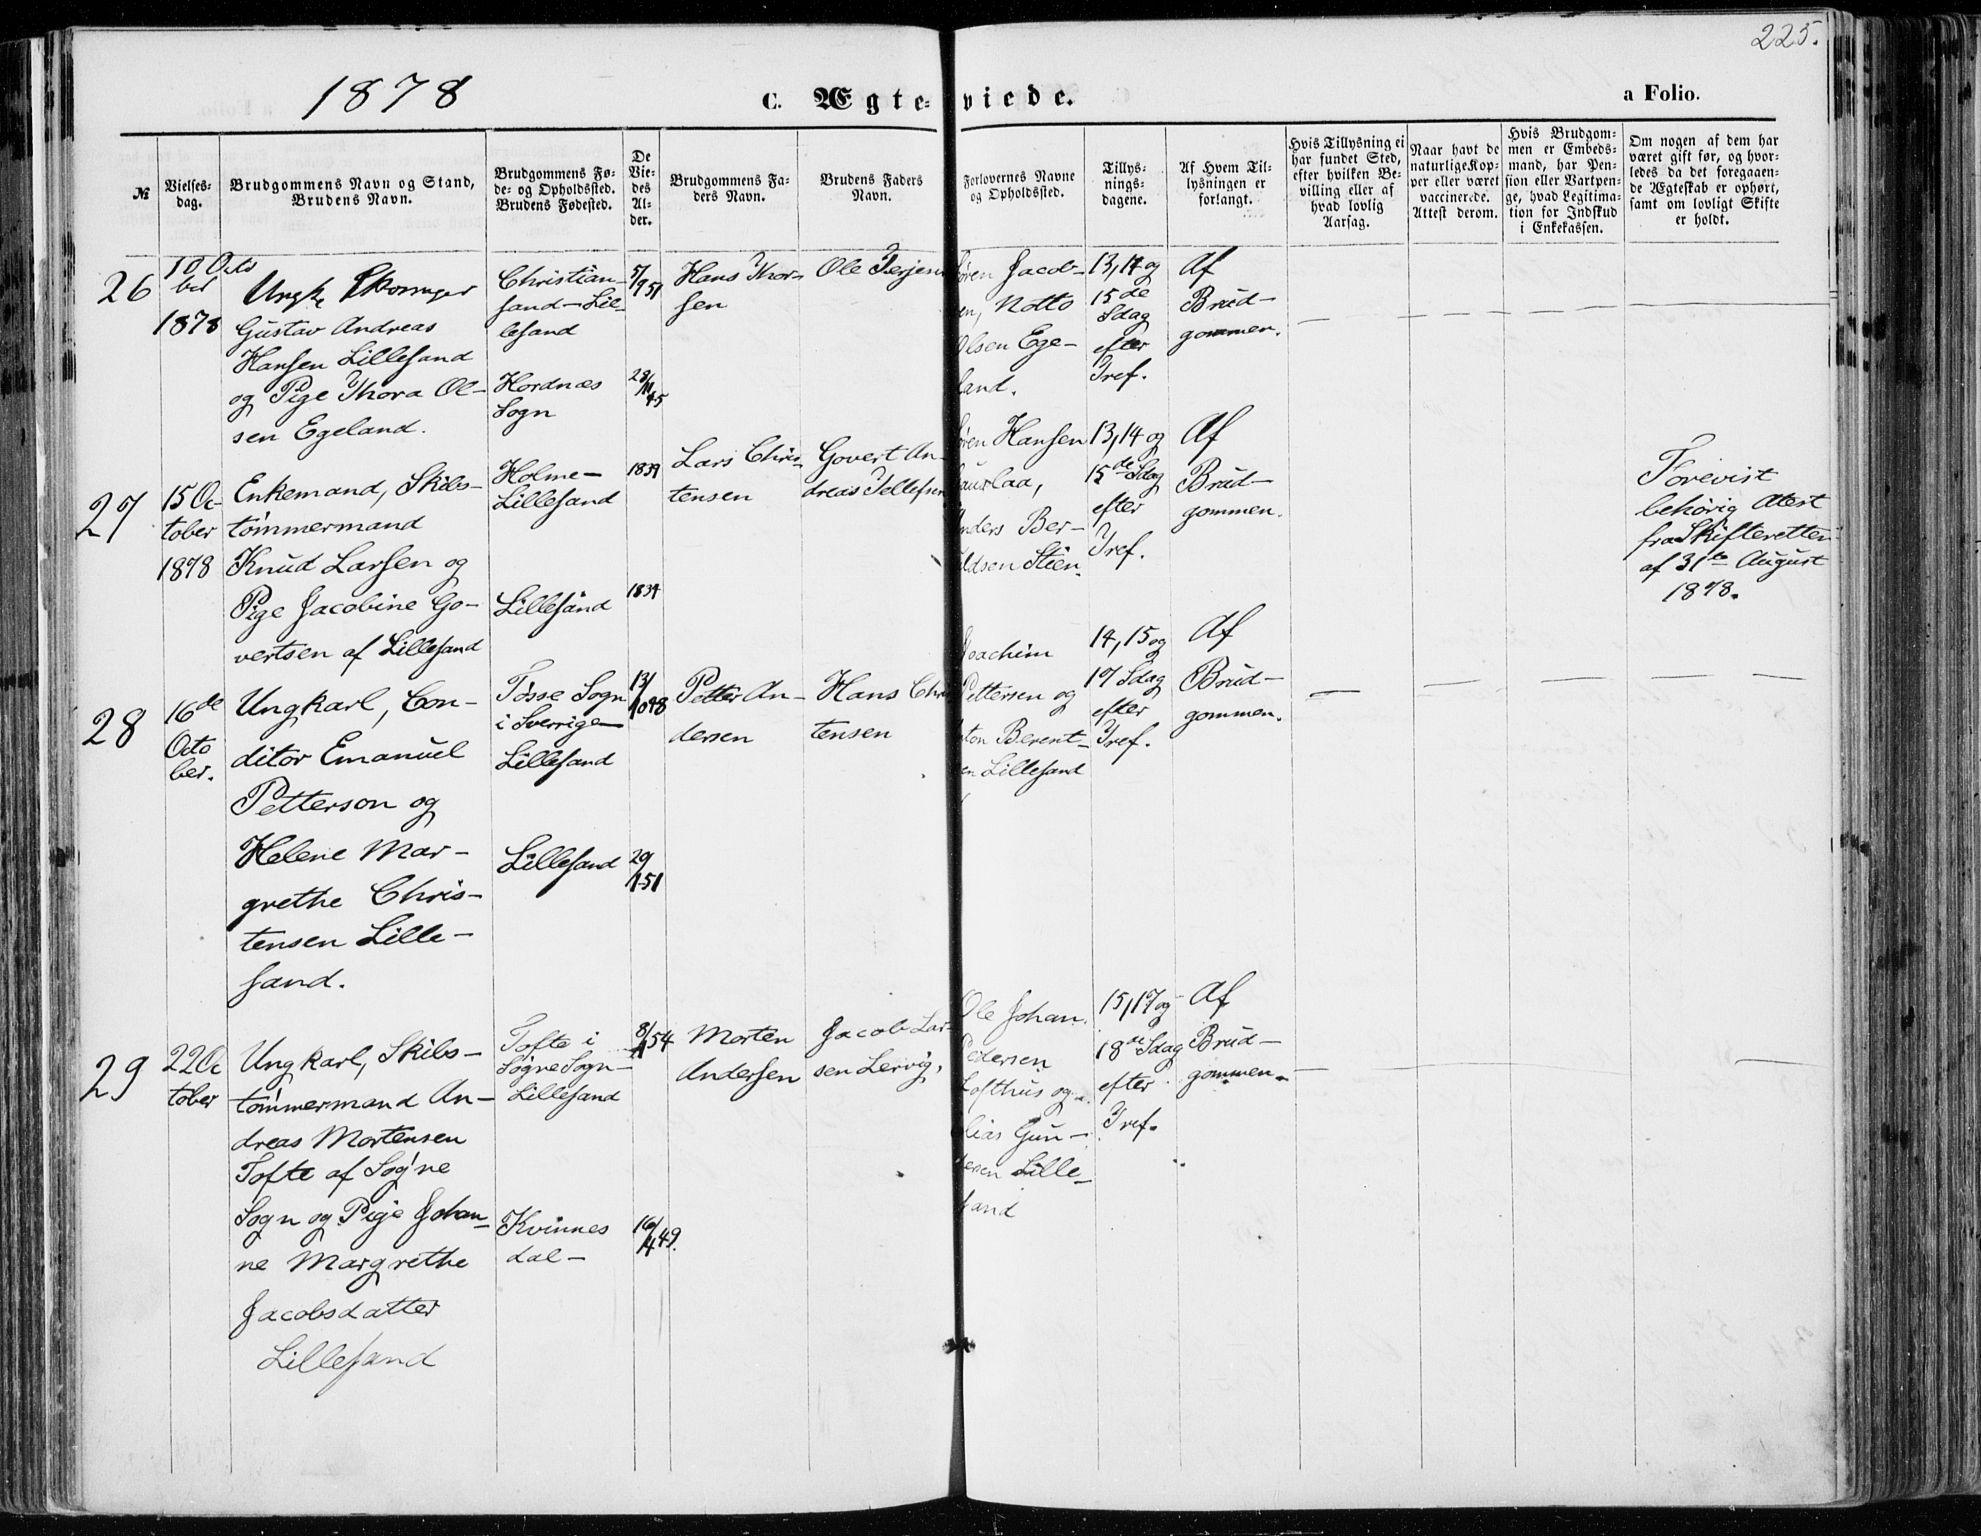 225.
1878
C. Ægte- viede.
a Folio.
№
Vielses-
dag.
Brudgommens Navn og Stand,
Brudens Navn.
Brudgommens Fø-
de- og Opholdssted.
Brudens Fødested.
De
Vie-
des
Al-
der.
Brudgommens Fa-
ders Navn.
Brudens Faders
Navn.
Forlovernes Navne
og Opholdssted.
Tillys-
nings-
dagene.
Af Hvem Til-
lysningen er
forlangt.
Hvis Tillysning ei
har fundet Sted,
efter hvilken Be-
villing eller af
hvad lovlig
Aarsag.
Naar havt de
naturlige Kop-
per eller været
vaccinerede.
Attest derom.
Hvis Brudgom-
men er Embeds-
mand, har Pen-
sion eller Vartpen-
ge, hvad Legitima-
tion for Indskud
i Enkekassen.
Om nogen af dem har
været gift før, og hvor-
ledes da det foregaaen-
de Ægteskab er ophørt,
samt om lovligt Skifte
er holdt.
26
10 Octo
ber
1878
Gustav Andreas
Hansen Lillesand
og Pige Thora Ol-
sen Egeland.
Christian-
sand - Lil-
lesand
Hordnæs
Sogn
5/9 51
28/11 45
Hans Thor-
sen
Ole Terjesen
Jacob-
Notto
Olsen Ege-
land.
13, 14 og
15de
Sdag
efter
Tref.
Af
Brud-
gommen.
27
15 Oc-
tober
1878
Enkemand, Skibs-
tømmermand
Knud Larsen og
Pige Jacobine Go-
vertsen af Lillesand
Holme-
Lillesand
Lillesand
1839
1834
Lars Chris-
tensen
Govert An-
dreas Tellefsen
Hansen
Anders Ber-
13, 14 og
15de Sdag
efter
Tref.
Af
Brud-
gommen.
Forevist
behørig Atest
fra Skifteretten
af 31te August
1878.
28
16de
Octo
ber.
Ungkarl, Con-
ditor Emanuel
Petterson og
Helene Mar-
grethe Chris-
tensen Lille-
sand.
Tösse Sogn
i Sverrige -
Lillesand
Lillesand
13/10 48
29/1 51
Petter An-
dersen
Hans Chris
tensen
Joachim
Pettersen og
Berent-
Lillesand
14, 15 og
17 Sdag
efter
Tref.
Af
Brud-
gommen.
29
22 Oc
tober
Ungkarl, Skibs-
tømmermand An-
dreas Mortensen
Tofte af Søgne
Sogn og Pige Johan-
ne Margrethe
Jacobsdatter
Lillesand
Tofte i
Søgne Sogn -
Lillesand
Kvinnes
dal -
8/11 54
16/4 49.
Morten
Andersen
Jacob Lar-
sen Lervig,
Ole Johan
Pedersen
Lofthus og
Elias Gun-
dersen Lille-
sand
15, 17 og
18de Sdag
efter
Tref.
Af
Brud-
gommen.